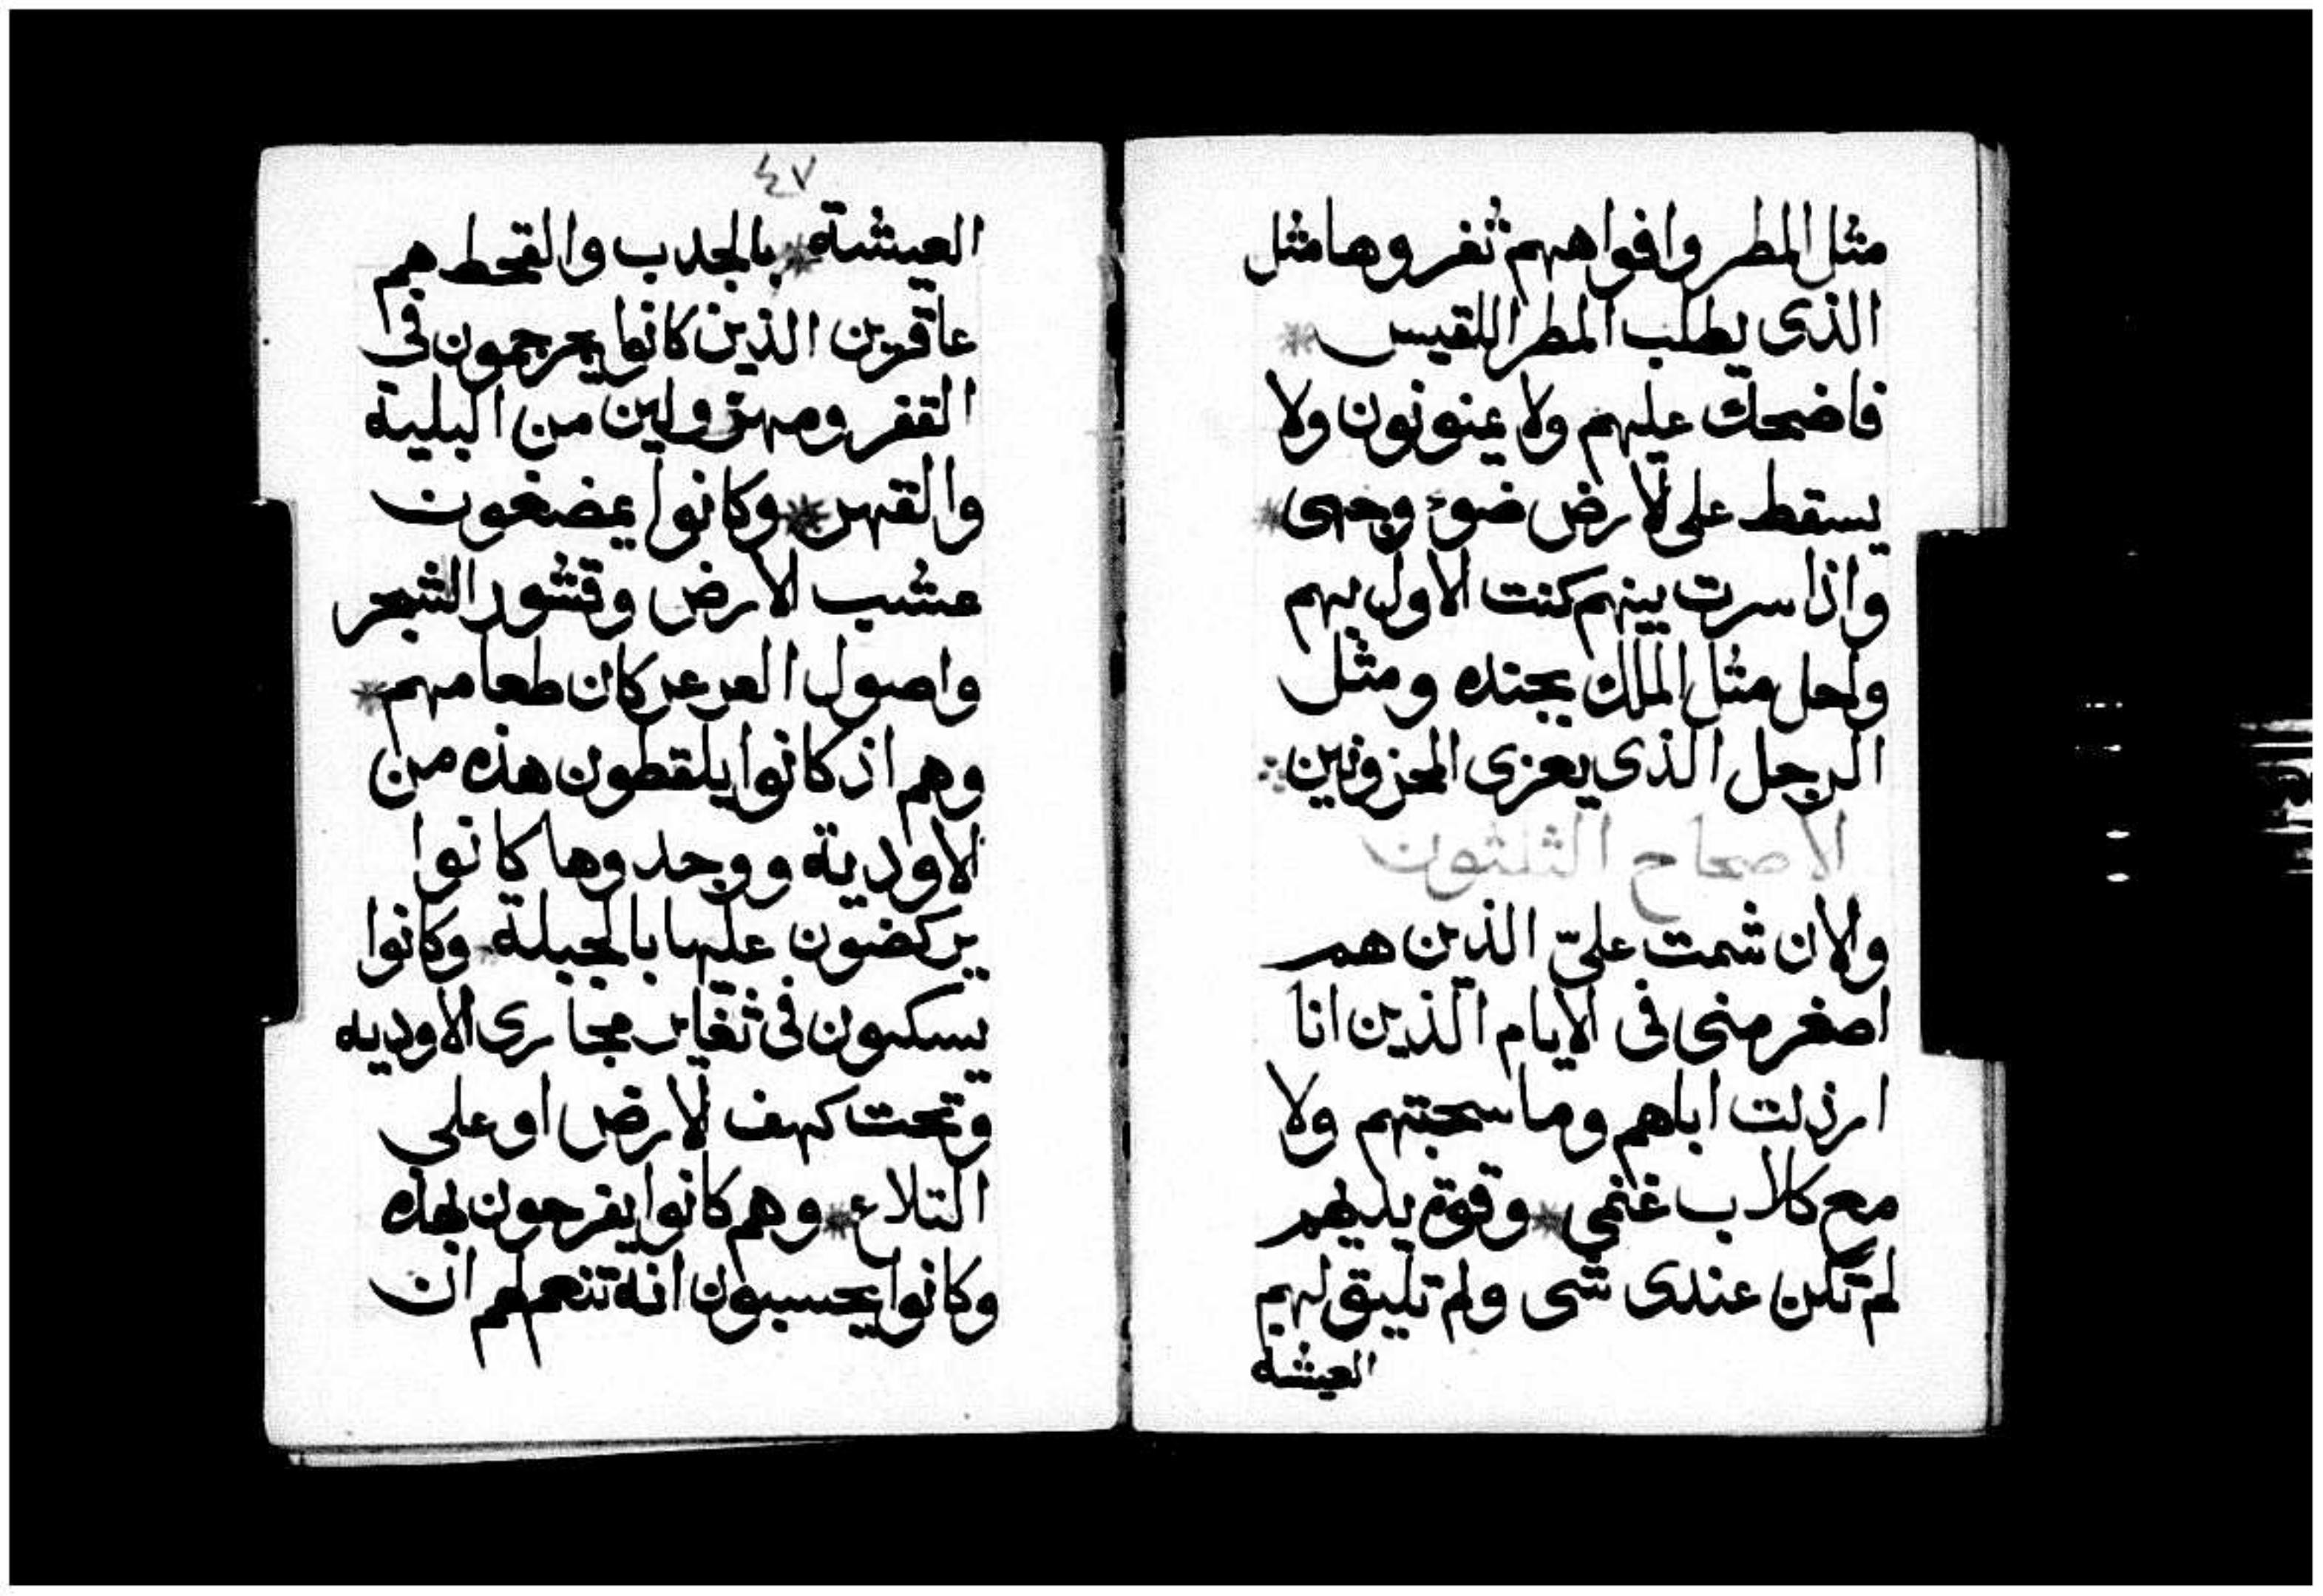 مثل المطر وافواههم ثغروها مثل
الذى يطلب المطر اللقيس *
فاضحك عليهم ولا يمنونون ولا
يسقط على لارض ضوء وجهى *
واذا سرت بينهم كنت الاول بهم
واحل مثل الملك بجنده ومثل
الرجل الذى يعزى المحزونين
الاصحاح الثلثون
والان شمت علىّ الذين هم
اصغر منى فى الايام الذين انا
ارذلت اباهم وما سحبتهم ولا
مع كلاب غنمى * وقوة يديهم
لم تكن عندى شى ولم تليق لهم
العيشه
٤٧
العيشة * بالجدب والقحط هم
عاقرين الذين كانوا يجرجمون فى
القفر ومهزولين من البلية
والقهر * وكانوا يمضغون
عشب الارض وقشور الشجر
واصول العرعر كان طعامهم *
وهم اذ كانوا يلقطون هذه من
الاودية ووجدوها كانوا
يركضون عليها بالجبلة * وكانوا
يسكنون فى ثغاير مجارى الاوديه
وتحت كهف لارض او على
التلاع * وهم كانوا يفرحون بهذه
وكانوا يحسبون انه تنعم لهم ان